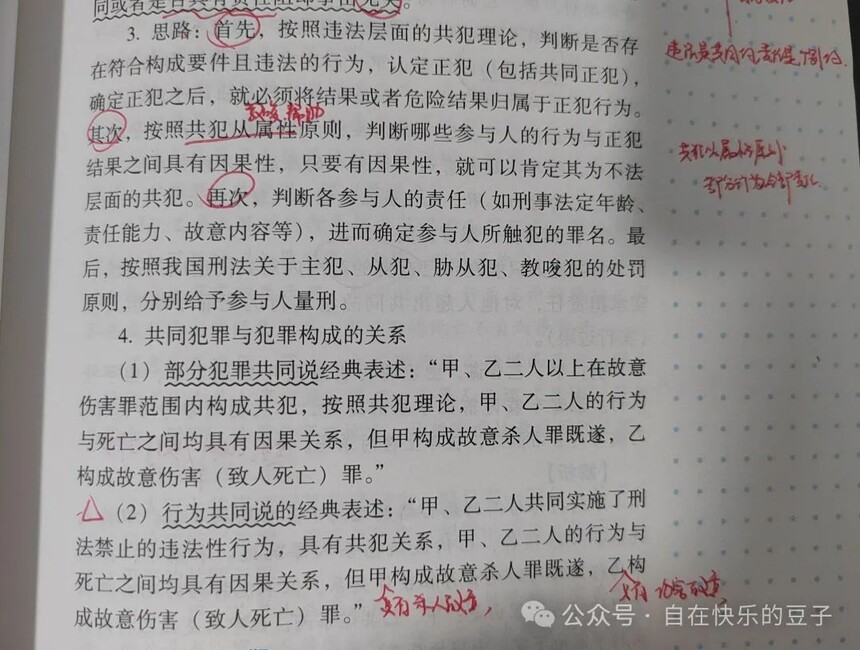 同或者是否具有责任阻却事由无关。
3. 思路：首先，按照违法层面的共犯理论，判断是否存
在符合构成要件且违法的行为，认定正犯（包括共同正犯），
确定正犯之后，就必须将结果或者危险结果归属于正犯行为。
教唆 帮助
其次，按照共犯从属性原则，判断哪些参与人的行为与正犯
结果之间具有因果性，只要有因果性，就可以肯定其为不法
层面的共犯。再次，判断各参与人的责任（如刑事法定年龄、
责任能力、故意内容等），进而确定参与人所触犯的罪名。最
后，按照我国刑法关于主犯、从犯、胁从犯、教唆犯的处罚
原则，分别给予参与人量刑。
4. 共同犯罪与犯罪构成的关系
（1）部分犯罪共同说经典表述：“甲、乙二人以上在故意
伤害罪范围内构成共犯，按照共犯理论，甲、乙二人的行为
与死亡之间均具有因果关系，但甲构成故意杀人罪既遂，乙
构成故意伤害（致人死亡）罪。”
（2）行为共同说的经典表述：“甲、乙二人共同实施了刑
法禁止的违法性行为，具有共犯关系，甲、乙二人的行为与
死亡之间均具有因果关系，但甲构成故意杀人罪既遂，乙构
成故意伤害（致人死亡）罪。”
具有杀人故意，
具有 伤害故意
违法是共同的，责任是个别的。
共犯从属性原则
部分行为全部责任
公众号·自在快乐的豆子